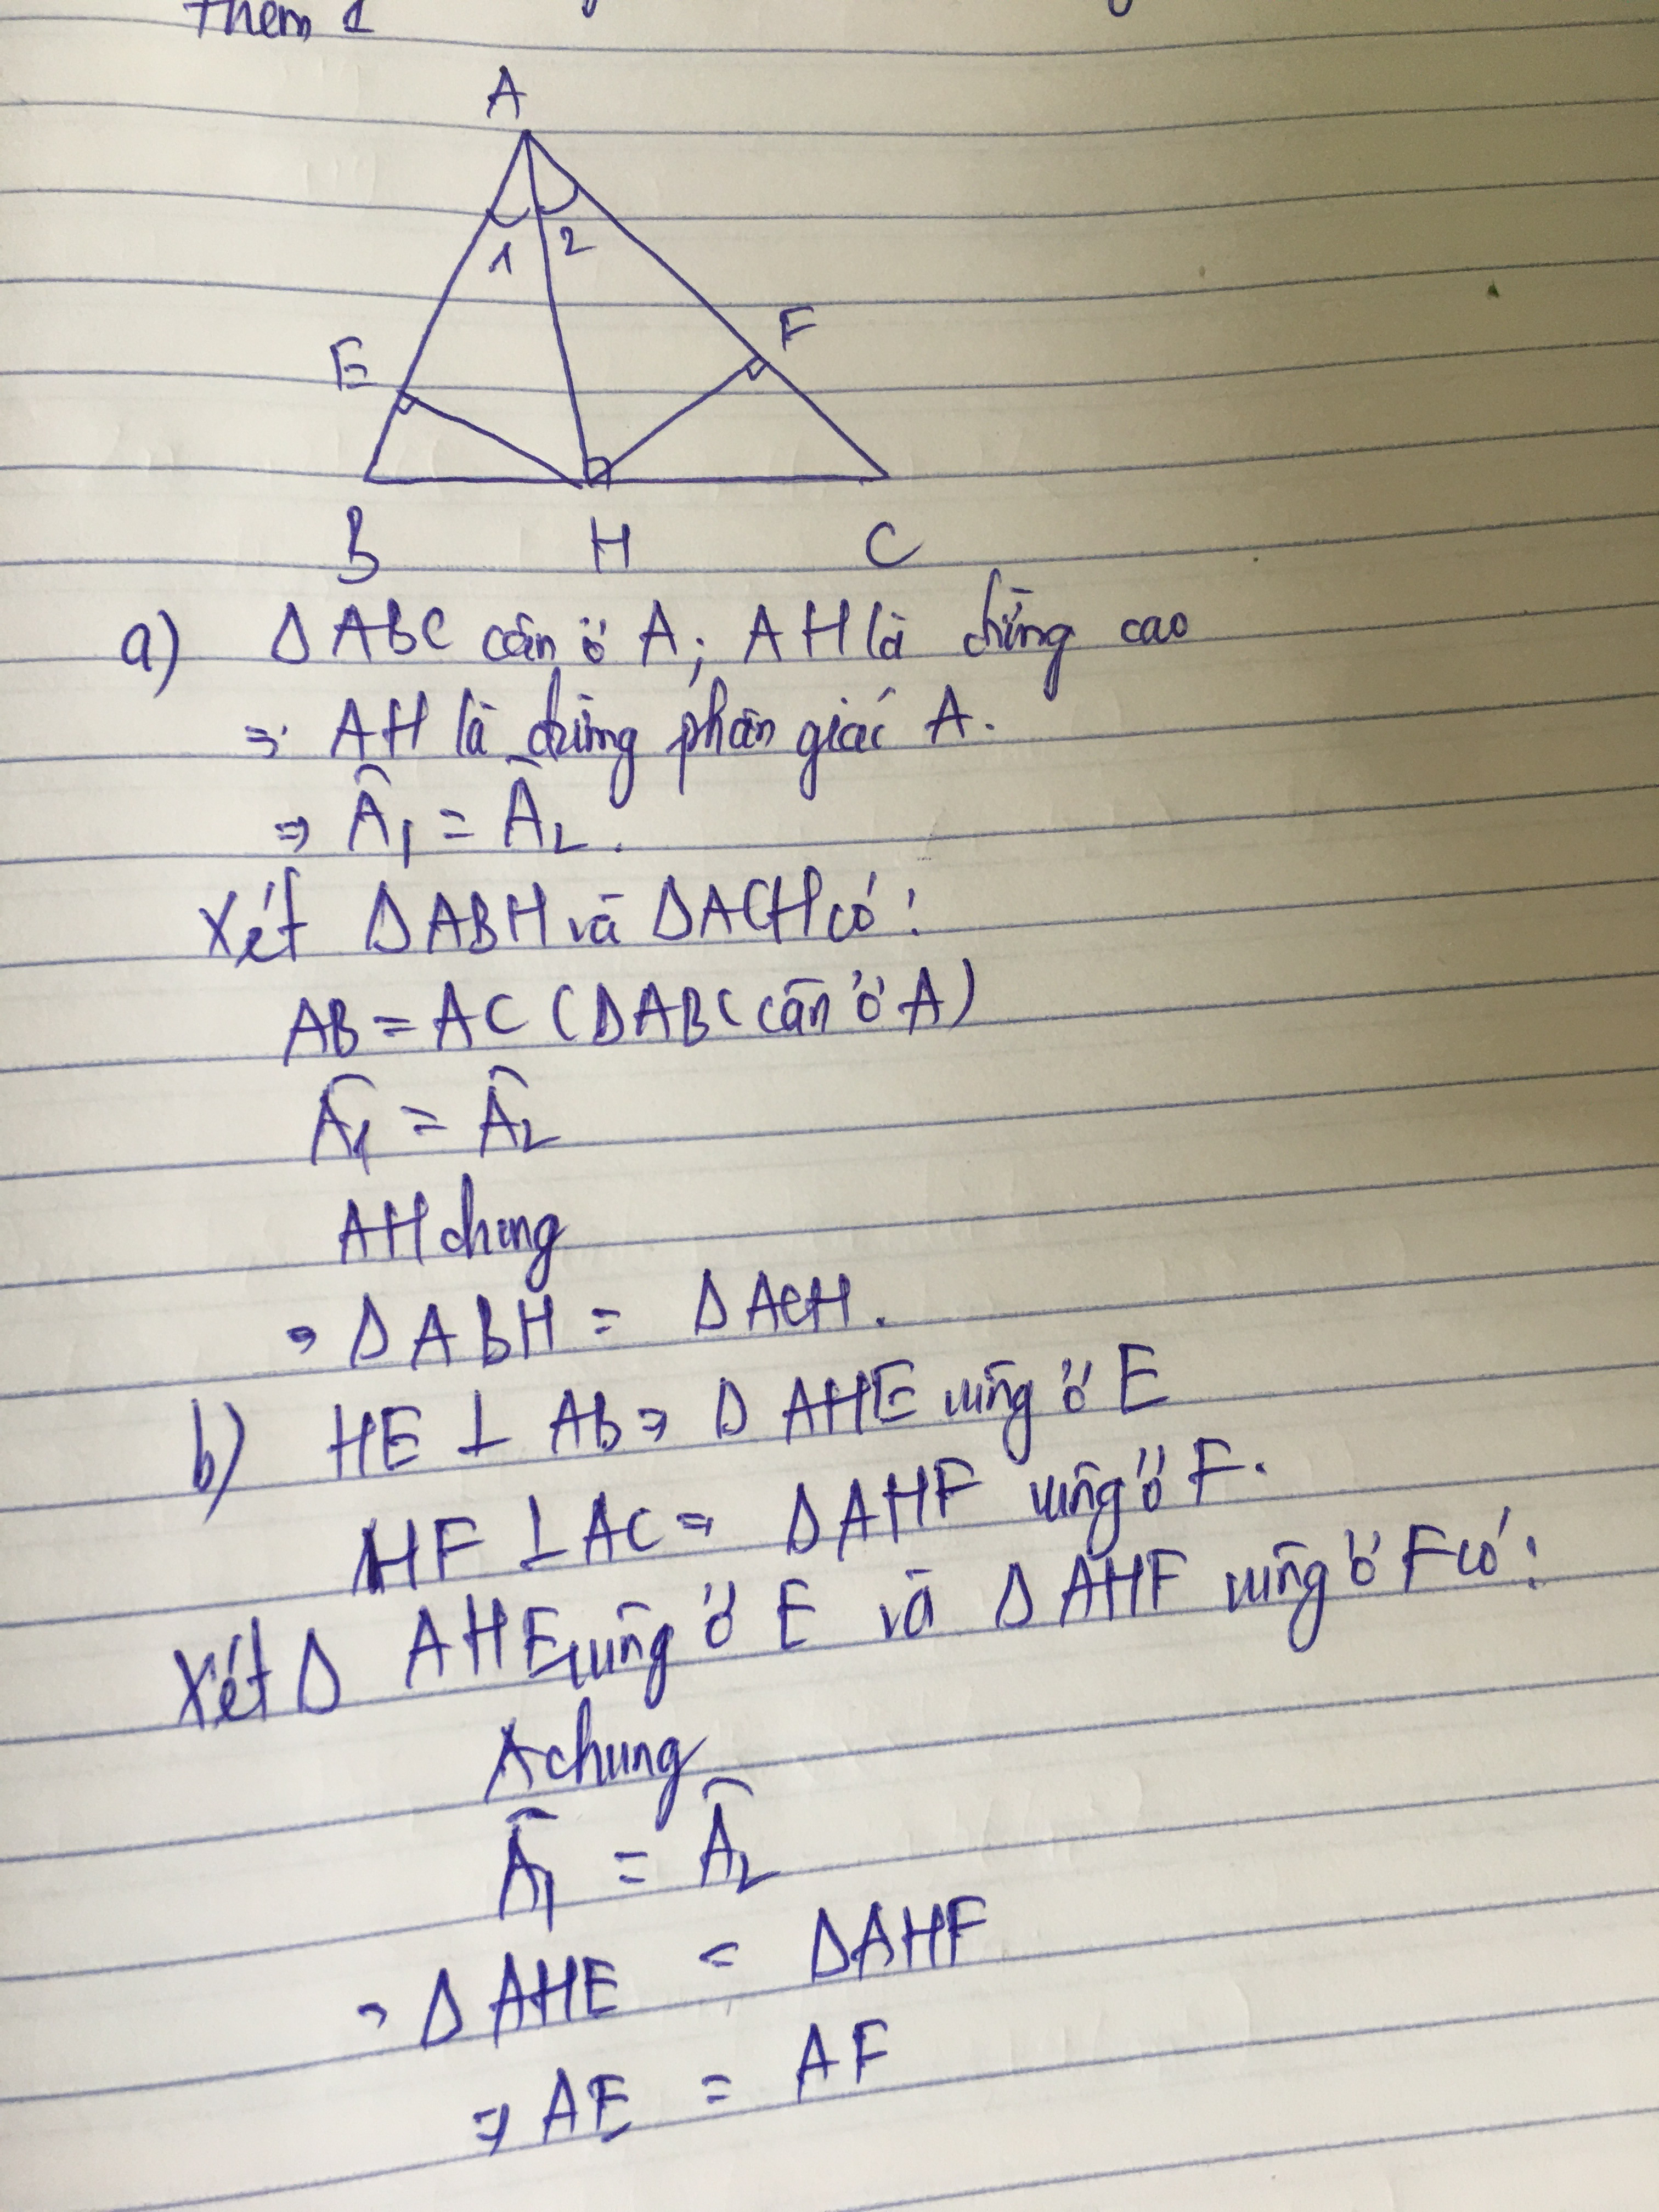 Thêm 1
A
1 2
E
F
B H C
a) Δ ABC cân ở A; AH là đường cao
⇒ AH là đường phân giác A.
⇒ Â₁ = Â₂.
Xét ΔABH và ΔACH có:
AB = AC (ΔABC cân ở A)
Â₁ = Â₂
AH chung
⇒ ΔABH = ΔACH.
b) HE ⊥ AB ⇒ Δ AHE vuông ở E
HF ⊥ AC ⇒ ΔAHF vuông ở F.
Xét Δ AHE vuông ở E và Δ AHF vuông ở F có:
A chung
Â₁ = Â₂
⇒ Δ AHE = ΔAHF
⇒ AE = AF